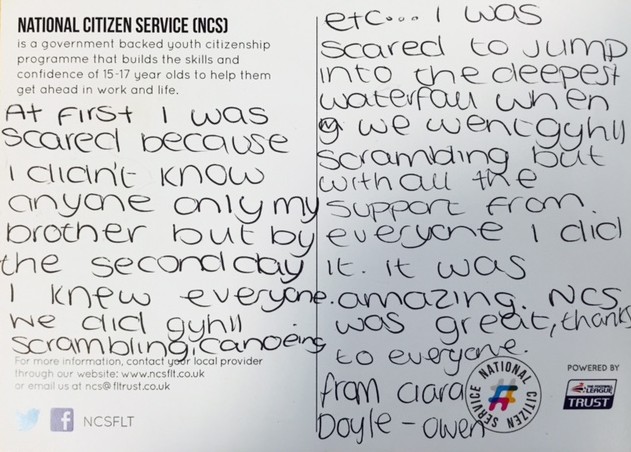 NATIONAL CITIZEN SERVICE (NCS)
is a government backed youth citizenship
programme that builds the skills and
confidence of 15-17 year olds to help them
get ahead in work and life.
At first I was
scared because
I didn't know
anyone only my
brother but by
the second day
I knew everyone.
we did gyhll
scrambling, canoeing
etc... I was
scared to jump
into the deepest
waterfall when
we went gyhll
scrambling but
with all the
support from
everyone I did
it. it was
amazing. NCS
was great, thanks
to everyone.
from Ciara
Doyle - Owen
For more information, contact your local provider
through our website: www.ncsflt.co.uk
or email us at ncs@fltrust.co.uk
NCSFLT
NATIONAL CITIZEN SERVICE
POWERED BY
LEAGUE
TRUST